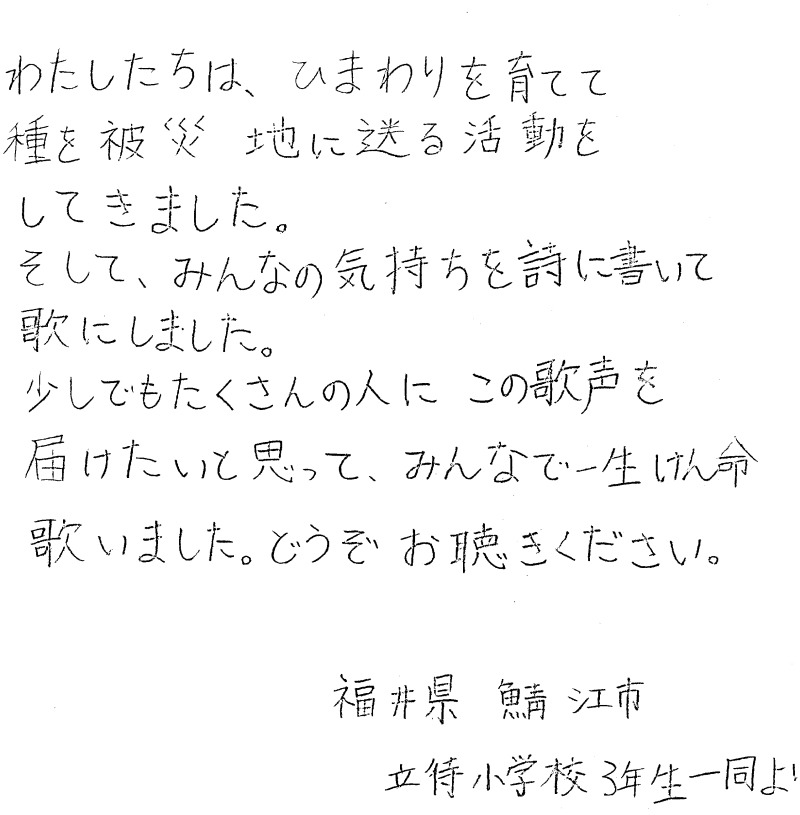 わたしたちは、ひまわりを育てて
種を被災地に送る活動を
してきました。
そして、みんなの気持ちを詩に書いて
歌にしました。
少しでもたくさんの人にこの歌声を
届けたいと思って、みんなで一生けん命
歌いました。どうぞお聴きください。
福井県 鯖江市
立待小学校3年生一同より